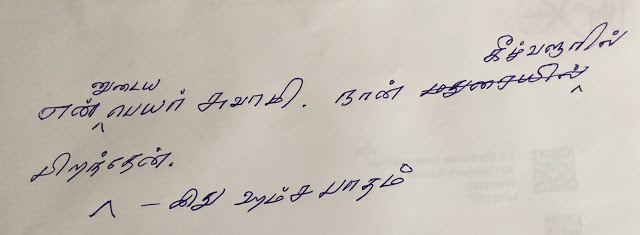 கீழ்வேளூரில்
னுடைய
என் ^ பெயர் சுவாமி. நான் மதுரையில் ^
பிறந்தேன்.
^ - இது ஹம்ச பாதம்